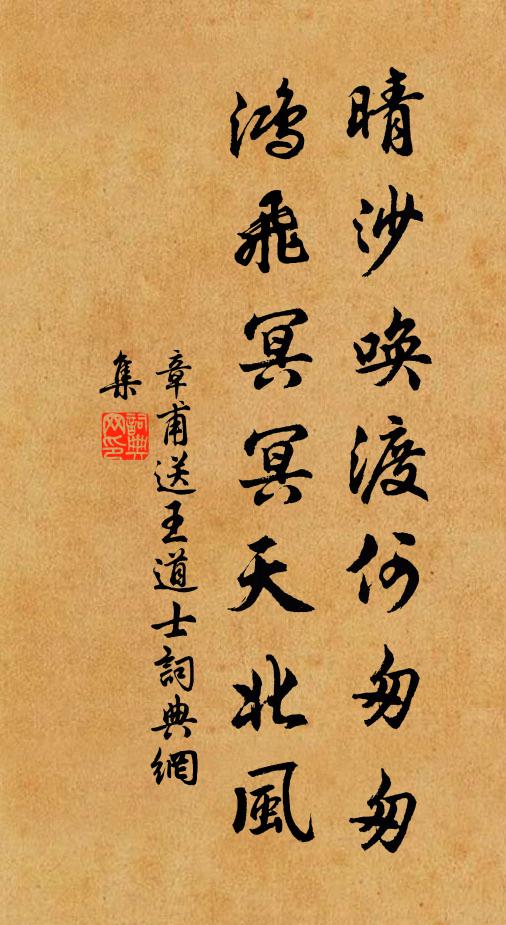 晴沙唤渡何匆匆
鴻飛冥冥天北風
章甫送王道士詞典網
集
詞典网印